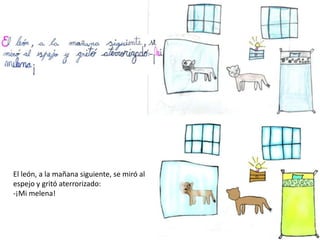 El león, a la mañana siguiente, se
miró al espejo y gritó aterrorizado-¡Mi
melena!
El león, a la mañana siguiente, se miró al
espejo y gritó aterrrorizado:
-¡Mi melena!